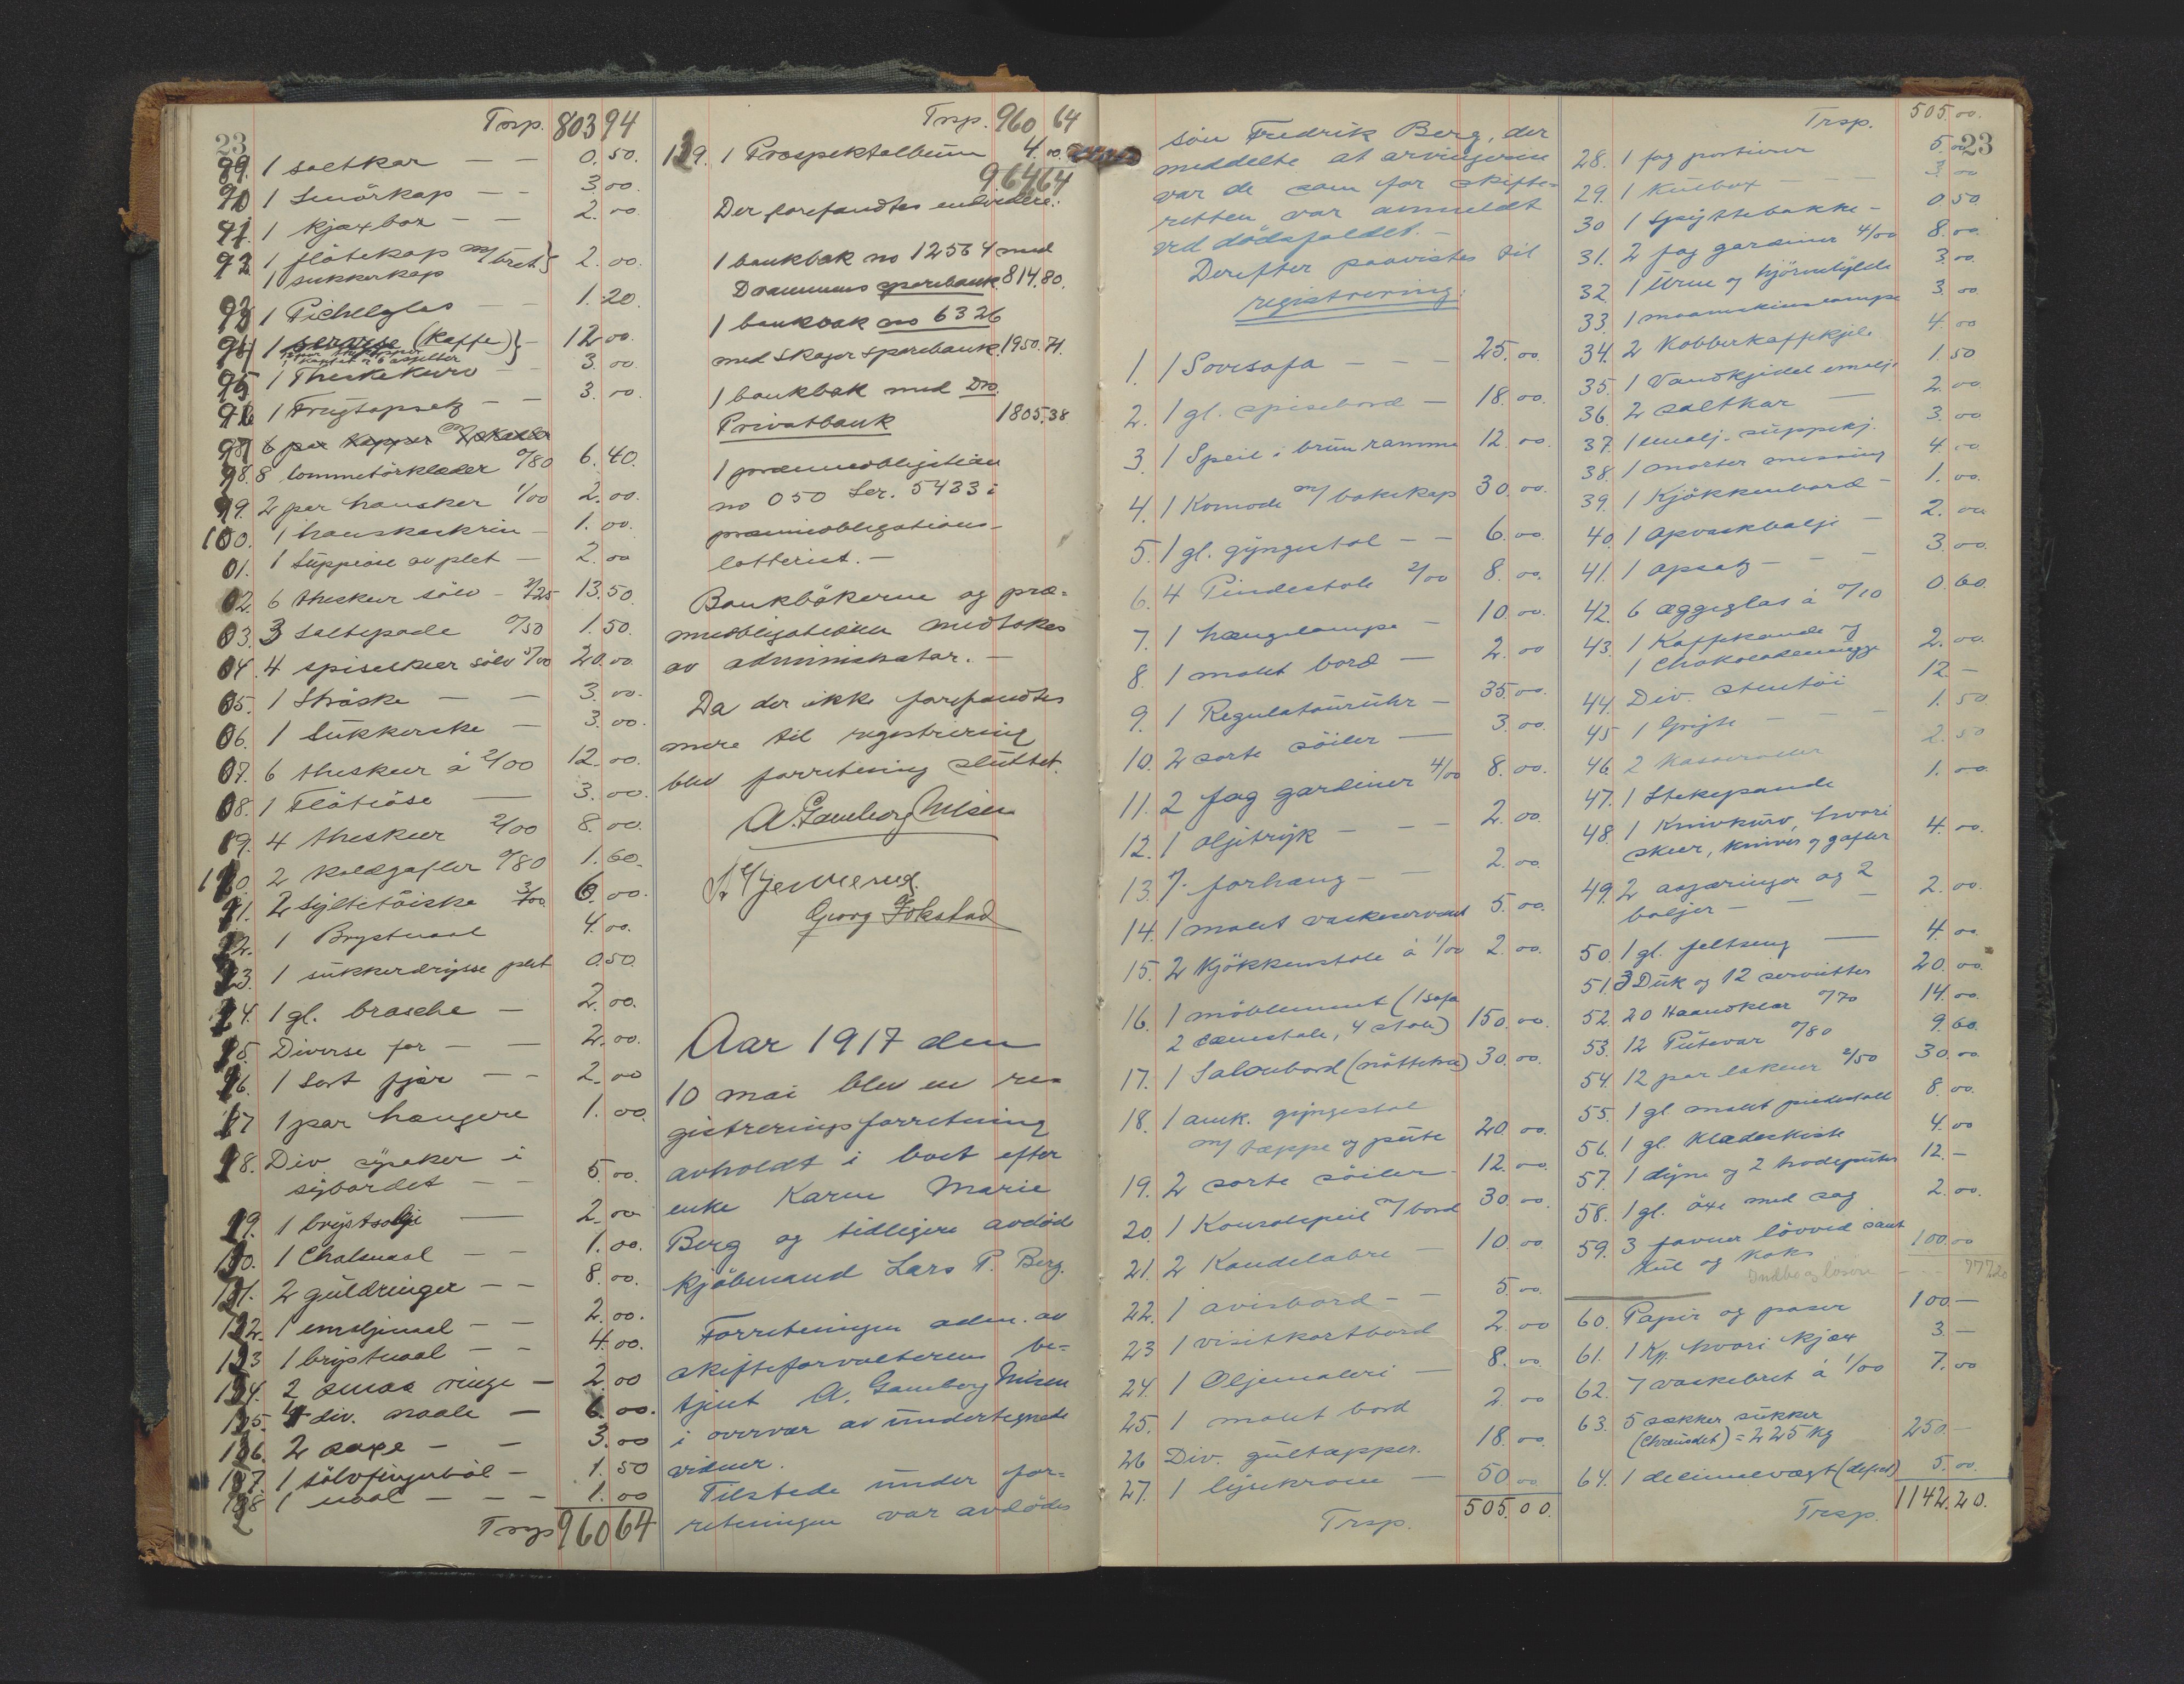 23
Trsp. 803 94
89. 1 saltkar — — 0.50.
90 1 Smörkop — — 3.00.
91. 1 kjaxbox — — 2.00.
92 1 flötekop m/ bret } 2.00.
1 sukkerkop
93 1 Pichelglas — — 1.20
94 1 servise (Kaffe) } — 12.00.
95 1 Theskekurv — 3.00.
96 1 Frugtopsats — — 3.00.
97 6 par kopper m/ skaaler
98. 8 lommetörklæder 0/80 6.40.
99. 2 par hansker 1/00 2.00.
100. 1 hanskeskrin — 1.00.
01. 1 Suppeöse av plet — 2.00
02. 6 theskeer sölv — 2/25 13.50.
03. 3 Saltspade 0/50 1.50.
04. 4 spiseskeer sölv 5/00 20.00.
05. 1 Ströske — — 3.00.
06. 1 Sukkerske — 3.00.
07. 6 theskeer á 2/00 12.00.
08. 1 Flöteöse — 3.00.
09. 4 theskeer 2/00 8.00.
110 2 koldgafler 0/80 1.60.
11. 2 Syltetöiske 3/00 6.00.
12. 1 Brystnaal 4.00.
13. 1 sukkerdrysse plet 0.50.
14. 1 gl. brosche — 2.00.
15. Diverse for — — 2.00.
16. 1 Sort fjær — — 2.00
17 1 par hængere 1.00
18. Div sysaker i
sybordet — — 5.00.
19. 1 brystsölje — 2.00
120. 1 Chalsnaal — — 1.00.
121. 2 guldringer — — 8.00.
122. 1 emaljenaal — — 2.00.
123 1 brystnaal — — 4.00.
124. 2 smaa ringe — 2.00
125. 4 div. naale — 6.00.
126. 2 saxe — — 3.00
127. 1 sölvfingerböl — 1.50
128 1 naal — — — 1.00
Trsp 960 64
Trsp. 960 64
129. 1 Prospektalbum 4.00.
964 64
Der forefandtes endvidere:
1 bankbok no 12564 med
Drammens sparebank. 814.80.
1 bankbok no 6326
med Skoger sparebank. 1950.71.
1 bankbok med Dr.
Privatbank 1805.38
1 præmieobligation
no 050 Ser. 5433 i
præmieobligations-
lotteriet. —
Bankbökerne og præ-
mieobligationen medtokes
av administrator. —
Da der ikke forefandtes
mere til registrering
blev forretning sluttet.
A. Gamborg Nilsen
Georg Fokstad
Aar 1917 den
10 mai blev en re-
gistreringsforretning
avholdt i boet efter
enke Karen Marie
Berg og tidligere avdöd
kjöbmand Lars P. Berg.
Forretningen adm. av
skifteforvalterens be-
tjent A. Gamborg Nilsen
i overvær av undertegnede
vidner.
Tilstede under for-
retningen var avdödes
sön Fredrik Berg, der
meddelte at arvingerne
var de som for skifte-
retten var anmeldt
ved dödsfaldet. —
Derefter paavistes til
registrering:
1. 1 Sovesofa — — — 25.00.
2. 1 gl. spisebord — 18.00.
3. 1 Speil i brun ramme 12.00.
4. 1 Komode m/ bokskap 30.00.
5. 1 gl. gyngestol — — 6.00.
6. 4 Pindestole 2/00 8.00.
7. 1 hængelampe — 10.00.
8. 1 malet bord — 2.00
9. 1 Regulatöruhr — 35.00.
10. 2 sorte söiler — 3.00.
11. 2 fag gardiner 4/00 8.00.
12. 1 oljetryk — — — 2.00.
13. 1 forhæng — — 2.00
14. 1 malet vaskeservant 5.00.
15. 2 Kjökkenstole á 1/00 2.00.
16. 1 möblement (1 sofa
2 dæmestole, 4 stole) 150.00.
17. 1 Salonbord (nöttetræ) 30.00.
18. 1 amk. gyngestol
m/ tæppe og pute 20.00.
19. 2 sorte söiler — 12.00.
20. 1 Konsolspeil m/ bord 30.00.
21. 2 Kandelabre — 10.00.
22. 1 avisbord — — 5.00.
23 1 visitkortbord 2.00
24. 1 Oljemaleri — 8.00.
25. 1 malet bord 2.00
26 Div. gultæpper. 18.00.
27. 1 lysekrone — 50.00
Trsp. 505.00.
Trsp. 505.00.
23
28. 1 fag portierer 5.00
29. 1 Kulbox — — — 3.00
30 1 Spyttebakke — 0.50
31. 2 fag gardiner 4/00 8.00.
32. 1 Urne og hjörnehylde 3.00.
33. 1 maaneskinslampe 3.00
34. 2 Kobberkaffekjele 4.00
35. 1 Vandkjedel emalje 1.50
36. 2 saltkar — 2.00
37. 1 emalj. suppekj. 3.00
38. 1 morter messing 4.00
39. 1 Kjökkenbord — 1.00.
40. 1 opvaskbalje — 2.00
41. 1 opsats — — 3.00.
42. 6 æggeglas á 0/10 0.60.
43. 1 Kaffekande og
1 Chokolademugge 2.00.
44. Div. stentöi 12 —
45 1 Gryte — — — 1.50
46. 2 Kasseroller 2.50
47. 1 Stekepande 1.00.
48. 1 Knivkurv, hvori
skeer, kniver og gafler 4.00.
49. 2 asjaringer og 2
baljer — — — 2.00.
50. 1 gl. feltseng — 4.00
51. 3 Duk og 12 servietter 20.00.
52. 20 Haandklær 0/70 14.00.
53. 12 Putevar 0/80 9.60.
54. 12 par lakener 2/50 30.00.
55. 1 gl. malet pindestoll 8.00.
56. 1 gl. Klædeskiste 4.00
57. 1 dyne og 2 hodeputer 12.—
58. 1 gl. öxe med sag 2.00.
59. 3 favner lövved samt
Kul og Koks 100.00
Indbo og lösöre — — — 777.20
60. Papir og poser 100.—
61. 1 Kp. hvori kjax 3.—
62. 7 vaskebret á 1/00 7.00
63. 5 sækker sukker
= 225 kg 250.—
64. 1 decimalvægt (defect) 5.00.
Trsp. 1142.20.